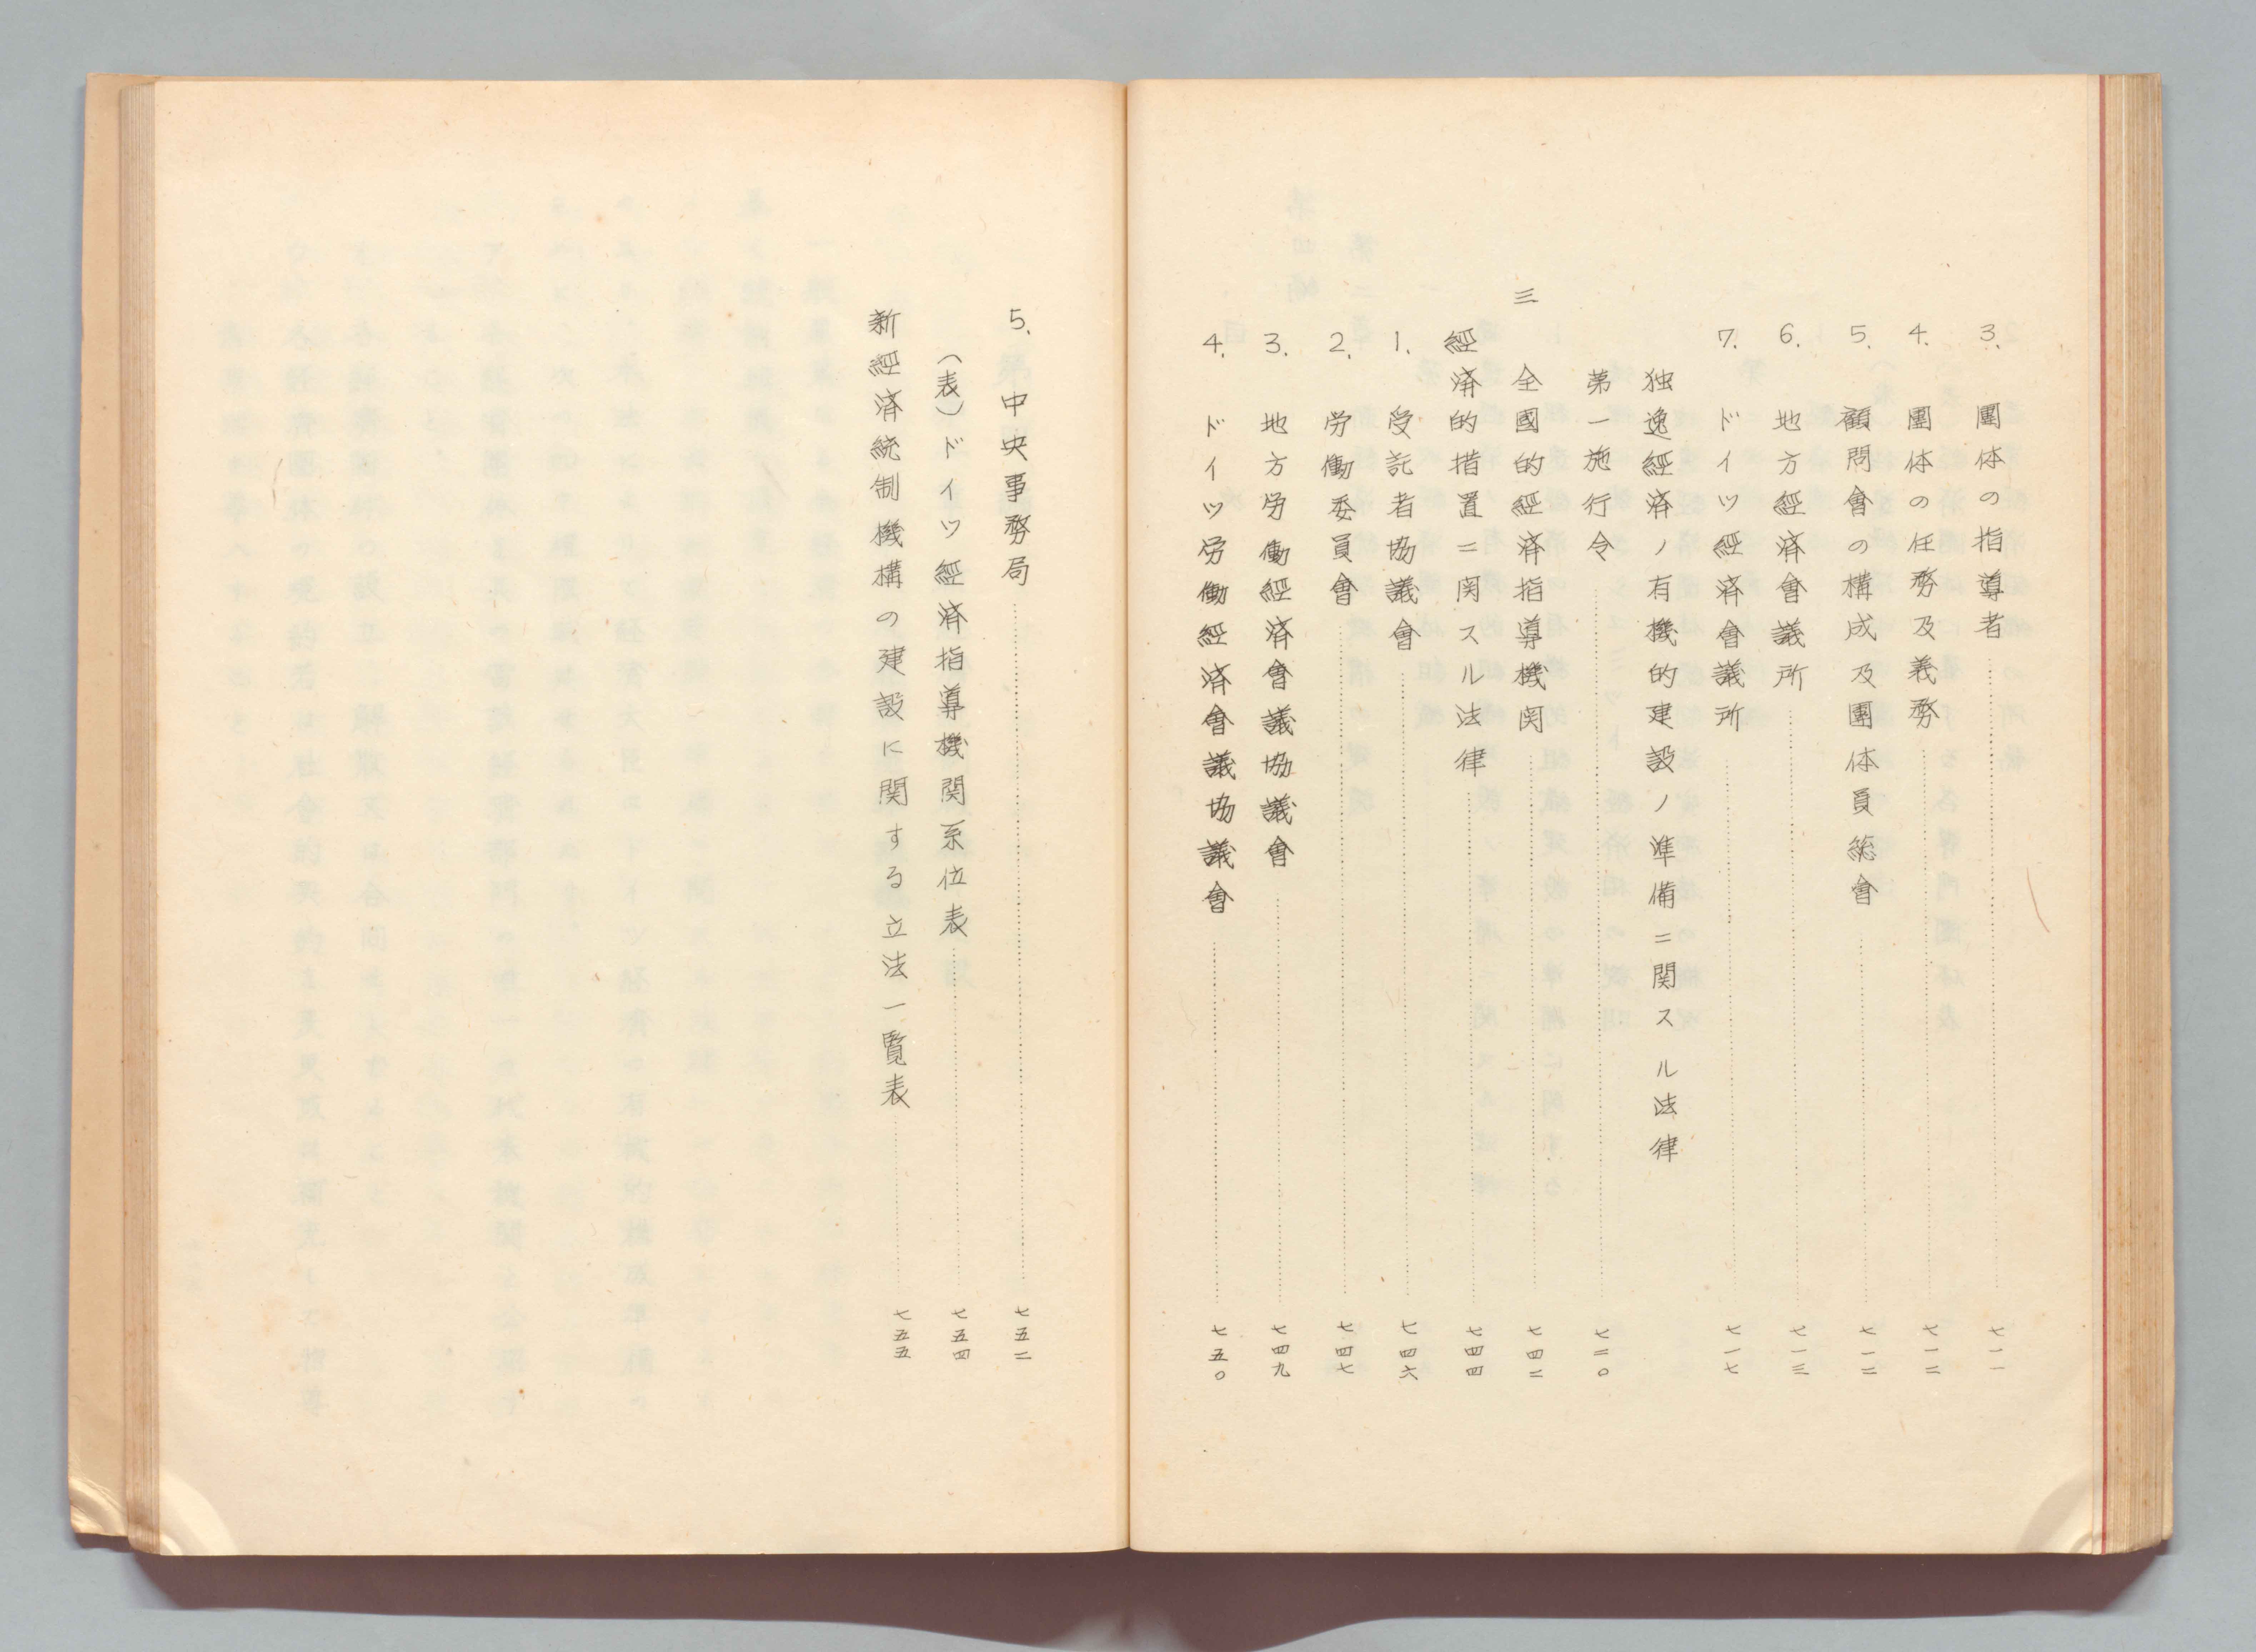 3. 團体の指導者 七一一
4. 團体の任務及義務 七一二
5. 顧問會の構成及團体員総會 七一二
6. 地方経済會議所 七一三
7. ドイツ経済會議所 七一七
独逸経済ノ有機的建設ノ準備ニ関スル法律
第一施行令 七二〇
三 全國的経済指導機関 七四二
経済的措置ニ関スル法律 七四四
1. 受託者協議會 七四六
2. 労働委員會 七四七
3. 地方労働経済會議協議會 七四九
4. ドイツ労働経済會議協議會 七五〇
5. 中央事務局 七五二
（表）ドイツ経済指導機関系位表 七五四
新経済統制機構の建設に関する立法一覧表 七五五